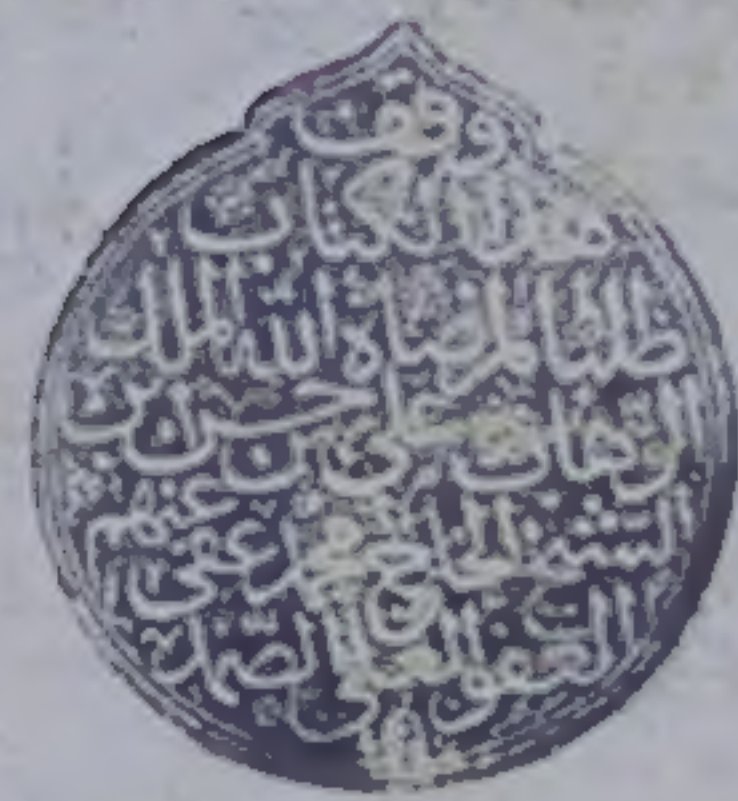 وقف
هذا الكتاب
طلبا لمرضاة الله الملك
الوهاب علي بن حسن بن
الشيخ الحاج محمد عفى عنهم
العفو الغني الصمد